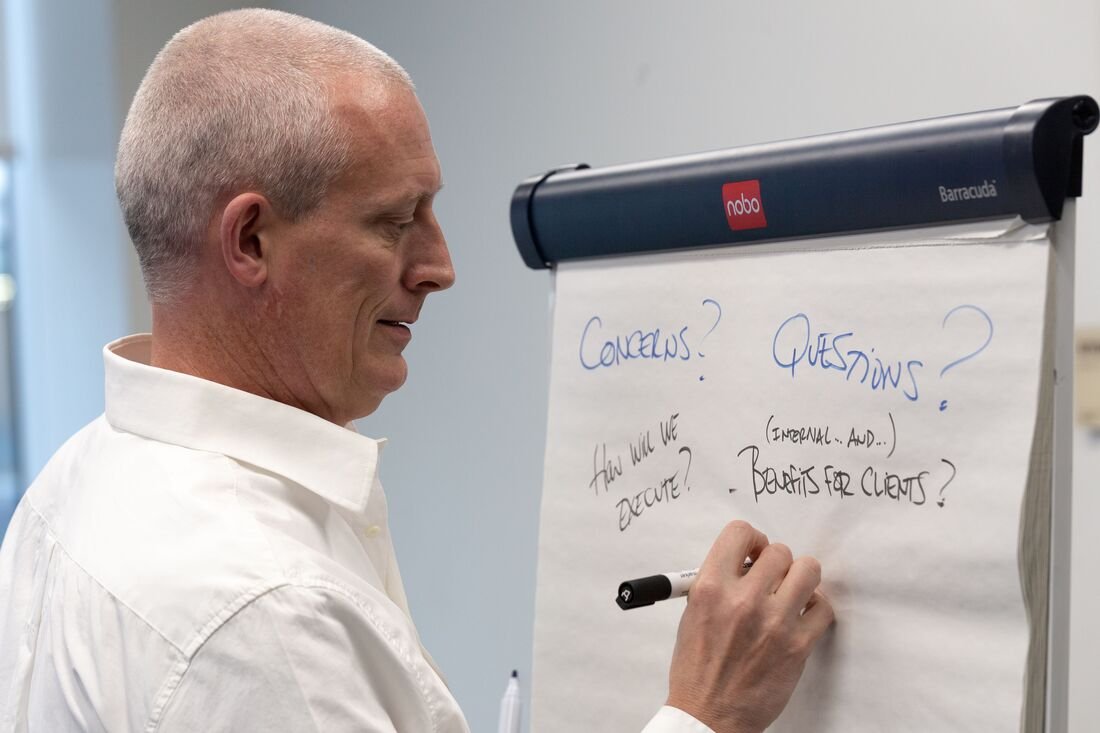 nobo
Barracuda
CONCERNS?
QUESTIONS?
HOW WILL WE
EXECUTE?
(INTERNAL... AND...)
- BENEFITS FOR CLIENTS?
marker